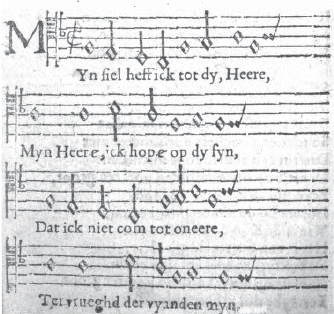 MYn siel heff ick tot dy, Heere,
Myn Heere, ick hope op dy syn,
Dat ick niet com tot oneere,
Ter vrueghd der vyanden myn.